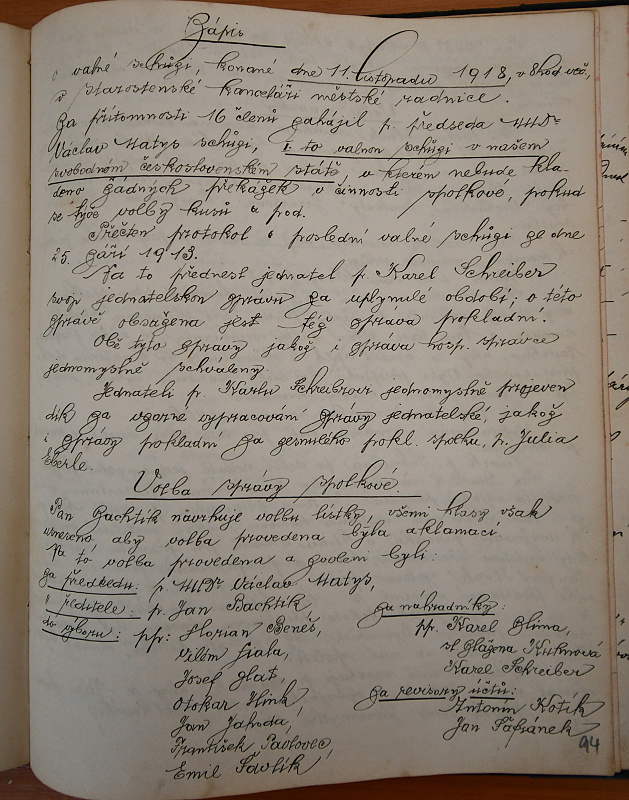 Zápis
o valné schůzi, konané dne 11. listopadu 1918, v 8 hod več,
v starostenské kanceláři městské radnice.
Za přítomnosti 16 členů zahájil p. předseda MUDr
Václav Matys schůzi, I to valnou schůzi v našem
svobodném československém státě, v kterém nebude kla-
deno žádných překážek v činnosti spolkové, pokud
se týče volby kusů a pod.
Přečten protokol o poslední valné schůzi ze dne
25. září 1913.
Na to přednest jednatel p. Karel Schreiber
svoji jednatelskou zprávu za uplynulé období; v této
zprávě obsažena jest též zpráva pokladní.
Obě tyto zprávy jakož i zpráva hosp. správce
jednomyslně schváleny.
Jednateli p. Karlu Schreibrovi jednomyslně projeven
dík za vzorné vypracování zprávy jednatelské, jakož
i zprávy pokladní za zesnulého pokl. spolku, p. Julia
Eberle.
Volba správy spolkové.
Pan Bachtík navrhuje volbu lístky, všemi hlasy však
usneseno aby volba provedena byla aklamací.
Na to volba provedena a zvoleni byli:
za předsedu: p. MUDr Václav Matys,
v ředitele: p. Jan Bachtík,
do výboru: pp: Florian Beneš,
Vilém Fiala,
Josef
Otokar
Jan Jahoda,
František Pavlovec,
Emil Šavlík,
za náhradníky:
pp. Karel
sl. Blažena
Karel Schreiber
za revisory účtů:
Antonín Kotík
Jan Šafránek
94